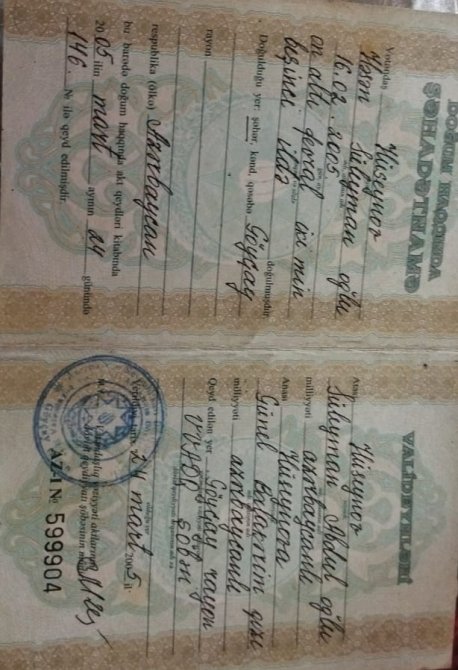 DOĞUM HAQQINDA
ŞƏHADƏTNAMƏ
Vətəndaş Hüseynov
Süleyman oğlu
16.02.2005
on altı fevral iki min
beşinci ildə
doğulmuşdur
Doğulduğu yer: şəhər, kənd, qəsəbə Göyçay
rayon
respublika (ölkə) Azərbaycan
bu barədə doğum haqqında akt qeydləri kitabında
2005 ilin mart ayının 24 günündə
146 № ilə qeyd edilmişdir.
VALİDEYNLƏRİ
Atası Hüseynov
Süleyman Abdul oğlu
milliyyəti azərbaycanlı
Anası Hüseynova
Günel qızı
milliyyəti azərbaycanlı
Qeyd edilən yer Göyçay rayon
VVADQ şöbəsi
Verilmə tarixi 24 mart 2005 il
AZ-I № 599904